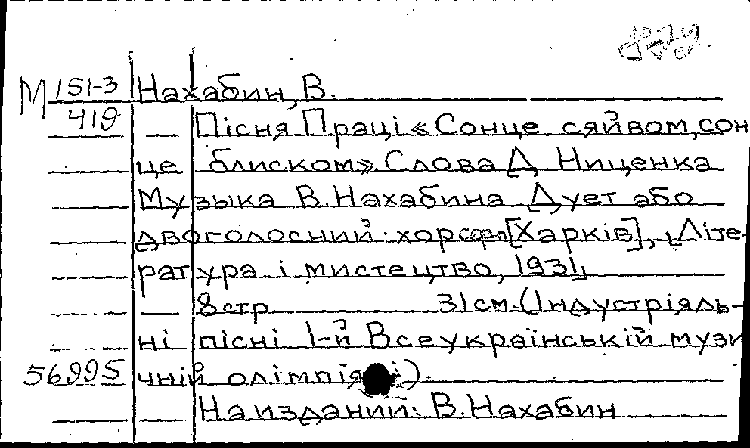 М 151-3 Нахабин, В.
419 Пісня Праці «Сонце сяйвом, сон
це блиском» Слова Д. Ниценка
Музыка В. Нахабина Дует або
двоголосний хор [Харків], „Літе-
ратура і мистецтво, 1931,
8 стр 31 см. (Індустріяль-
ні пісні 1-й Всеукраїнській музи
56995 чній олімпіяді).
На издании: В. Нахабин